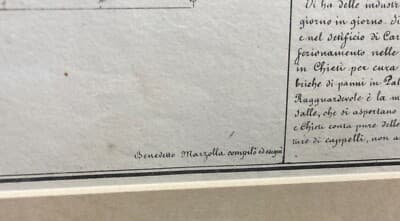 Vi ha delle industr
giorno in giorno. Si
e nel setificio di Car
ferionamento nelle
in Chieti per cura
briche di panni in Pal
Ragguardevole è la m
salle, che si asportano
e Chieti conta pure delle
rare di cappelli, non a
Benedetto Marzolla compilò ed eseguì